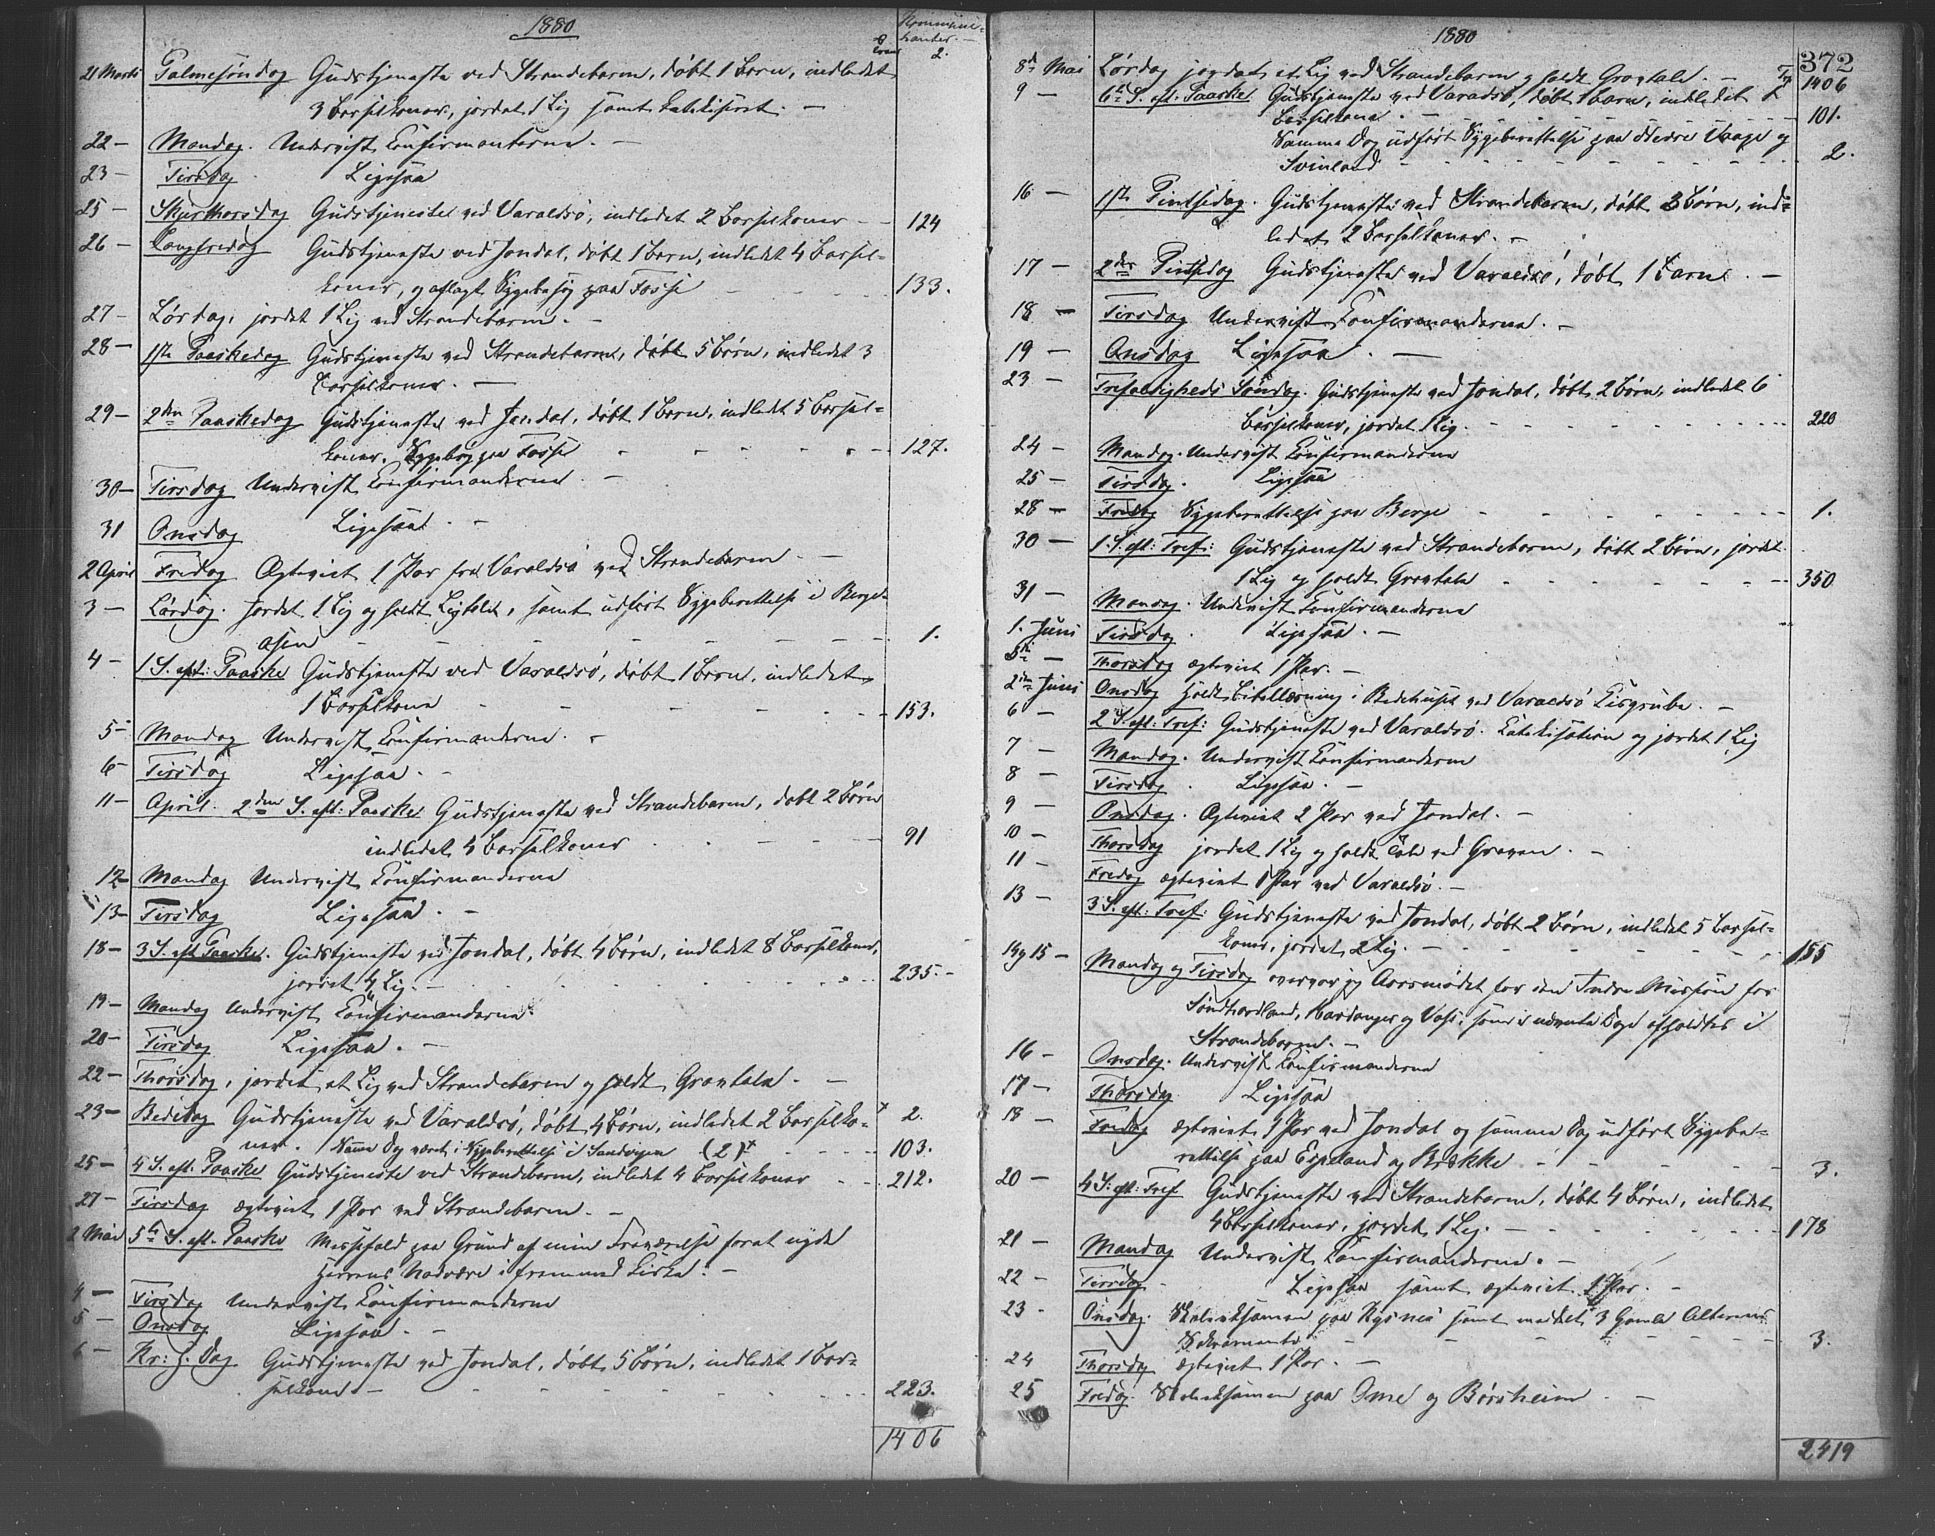 1880
Kommuni-
kanter.
2.
21 Marts Palmesøndag Gudstjeneste ved Strandebarm, døbt 1 Barn, indledet
3 Barselkoner, jordet 1 Lig samt katekiseret. —
22 — Mandag. Undervist Confirmanterne. —
23 — Tirsdag Ligesaa
25 — Skjærthorsdag Gudstjeneste ved Varaldsø, indledet 2 Barselkoner — — 124
26 — Langfredag Gudstjeneste ved Jondal, døbt 1 Barn, indledet 4 Barsel-
koner, og aflagt Sygebesøg paa Fosse — — — 133.
27 — Lørdag, jordet 1 Lig ved Strandebarm. —
28 — 1ste Paaskedag Gudstjeneste ved Strandebarm, døbt 5 Børn, indledet 3
Barselkoner. —
29 — 2den Paaskedag Gudstjeneste ved Jondal, døbt 1 Barn, indledet 5 Barsel-
koner. Sygebesøg paa Fosse — — 127.
30 — Tirsdag Undervist Confirmanderne. —
31 Onsdag Ligesaa. —
2 April Fredag Ægteviet 1 Par fra Varaldsø ved Strandebarm —
3 — Lørdag. Jordet 1 Lig og holdt Ligtale, samt udført Sygeberettelse i Berge-
asen — — — 1.
4 — 1 S. eft: Paaske Gudstjeneste ved Varaldsø, døbt 1 Barn, indledet
1 Barselkone — — — 153.
5 — Mandag Undervist Confirmanderne. —
6 — Tirsdag Ligesaa. —
11 — April. 2den S. eft: Paaske Gudstjeneste ved Strandebarm, døbt 2 Børn
indledet 4 Barselkoner — — — 91
12 — Mandag Undervist Confirmanderne
13 — Tirsdag Ligesaa. —
18 — 3 S. eft Paaske. Gudstjeneste ved Jondal, døbt 4 Børn, indledet 8 Barselkoner,
jordet 4 Lig. — — — 235. —
19 — Mandag Undervist Confirmanderne
20 — Tirsdag Ligesaa. —
22 — Thorsdag, jordet et Lig ved Strandebarm og holdt Gravtale. —
23 — Bededag Gudstjeneste ved Varaldsø, døbt 4 Børn, indledet 2 Barselko- + 2.
ner. Samme Dag været i Sygeberettelse i Sandvigen (2)+ — — 103.
25 — 4 S. eft. Paaske Gudstjeneste ved Strandebarm, indledet 4 Barselkoner — — 212.
27 — Tirsdag ægteviet 1 Par ved Strandebarm. —
2 Mai 5te S. eft. Paaske Messefald paa Grund af min Fraværelse forat nyde
Herrens Nadvere i fremmed Kirke. —
4 — Tirsdag Undervist Confirmanderne
5 — Onsdag Ligesaa. —
6 — Kr: H. Dag Gudstjeneste ved Jondal, døbt 5 Børn, indledet 1 Bar-
selkone. — — — 223.
1406
1880
372
8de Mai Lørdag jordet et Lig ved Strandebarm og holdt Gravtale. — 1406
9 — 6te S. eft: Paaske Gudstjeneste ved Varaldsø, døbt 1 Barn, indledet 2
Barselkoner. — — — 101.
Samme Dag udført Sygeberettelse paa Nedre Vaage og
Svinland — — — 2.
16 — 1ste Pintsedag. Gudstjeneste ved Strandebarm, døbt 3 Børn, ind-
ledet 2 Barselkoner. —
17 — 2den Pintsedag Gudstjeneste ved Varaldsø, døbt 1 Barn. —
18 — Tirsdag Undervist Confirmanderne. —
19 — Onsdag Ligesaa. —
23 — Trefoldigheds Søndag. Gudstjeneste ved Jondal, døbt 2 Børn, indledet 6
Barselkoner, jordet 1 Lig. — — — 220
24 — Mandag. Undervist Confirmanderne
25 — Tirsdag. Ligesaa
28 — Fredag Sygeberettelse paa Berge — — — 1.
30 — 1 S. eft: Tref: Gudstjeneste ved Strandebarm, døbt 2 Børn, jordet
1 Lig og holdt Gravtale — — — 350
31 — Mandag. Undervist Confirmanderne
1. Juni Tirsdag. Ligesaa. —
3de — Thorsdag ægteviet 1 Par. —
2den Juni Onsdag Holdt Bibellæsning i Bedehuset ved Varaldsø Kisgrube. —
6 — 2 S. eft: Tref: Gudstjeneste ved Varaldsø. Katekisation og jordet 1 Lig
7 — Mandag. Undervist Confirmanderne
8 — Tirsdag. Ligesaa. —
9 — Onsdag. Ægteviet 2 Par ved Jondal. —
10 — Thorsdag jordet 1 Lig og holdt Tale ved Graven. —
11 — Fredag ægteviet 1 Par ved Varaldsø. —
13 — 3 S. eft: Tref: Gudstjeneste ved Jondal, døbt 2 Børn, indledet 5 Barsel-
koner, jordet 2 Lig. — — — 155
14 og 15 — Mandag og Tirsdag overvar jeg Aarsmødet for den Indre Mission for
Søndhordland, Hardanger og Voss, som i nævnte Dage afholdtes i
Strandebarm. —
16 — Onsdag. Undervist Confirmanderne
17 — Thorsdag Ligesaa
18 — Fredag ægteviet 1 Par ved Jondal og samme Dag udført Sygebe-
rettelse paa Espeland og Brække — — — 3.
20 — 4 S. eft: Tref Gudstjeneste ved Strandebarm, døbt 4 Børn, indledet
4 Barselkoner, jordet 1 Lig. — — — 178
21 — Mandag Undervist Confirmanderne. —
22 — Tirsdag — Ligesaa samt ægteviet 1 Par. —
23 — Onsdag. Skoleeksamen paa samt meddelt 3 Gamle Alterens
Sakramente. — — — 3.
24 Thorsdag ægteviet 1 Par. —
25 Fredag. Skoleeksamen paa Ome og Børsheim —
2419